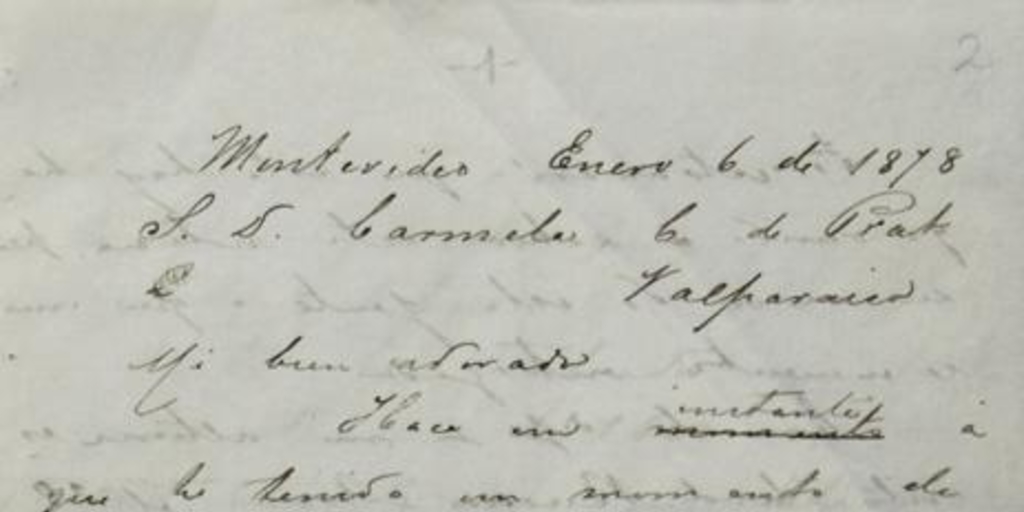 2
Montevideo Enero 6 de 1878
S. D. Carmela C de Prat
Valparaiso
Mi bien adorado
instante
Hace un momento á
que he tenido un momento de